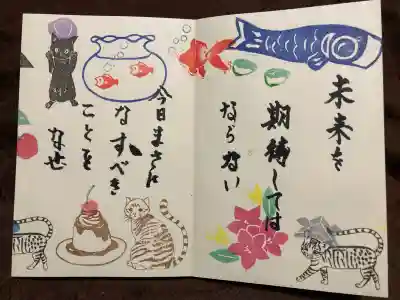 未来を
期待しては
ならない
今日まさに
なすべき
ことを
なせ